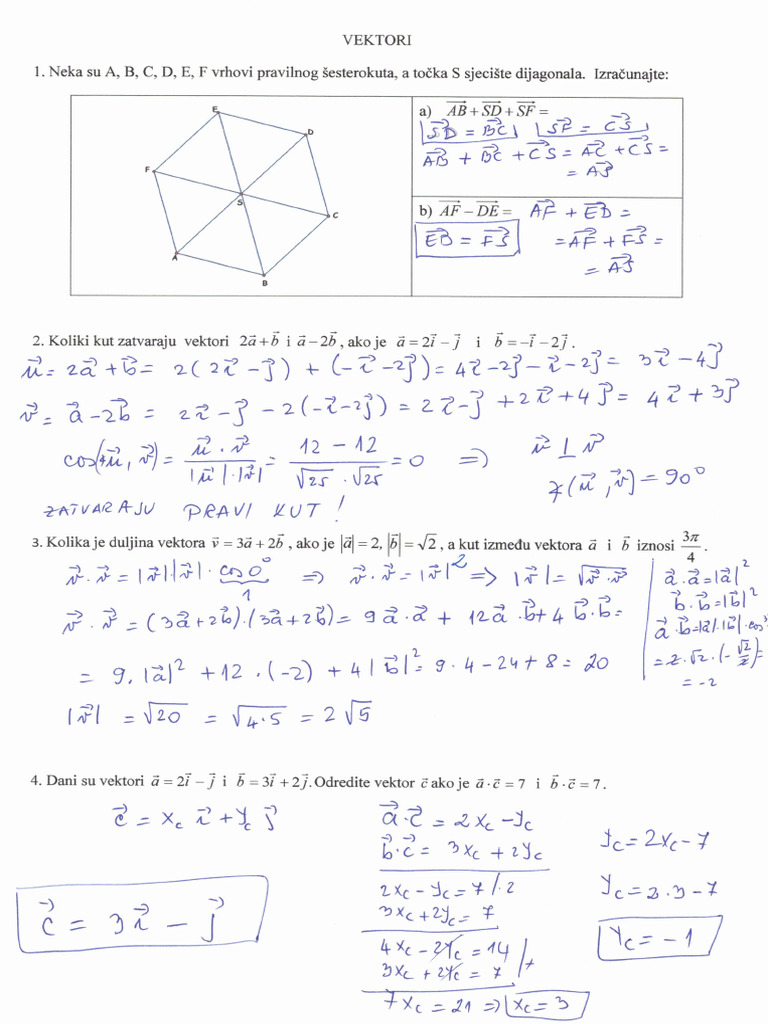 VEKTORI
1. Neka su A, B, C, D, E, F vrhovi pravilnog šesterokuta, a točka S sjecište dijagonala. Izračunajte:
E
D
F
S
C
A
B
a) $\overrightarrow{AB} + \overrightarrow{SD} + \overrightarrow{SF} =$
$\overrightarrow{SD} = \overrightarrow{BC}$ $\overrightarrow{SF} = \overrightarrow{CS}$
$\overrightarrow{AB} + \overrightarrow{BC} + \overrightarrow{CS} = \overrightarrow{AC} + \overrightarrow{CS} =$
$= \overrightarrow{AS}$
b) $\overrightarrow{AF} - \overrightarrow{DE} =$ $\overrightarrow{AF} + \overrightarrow{ED} =$
$\overrightarrow{EB} = \overrightarrow{FS}$ $= \overrightarrow{AF} + \overrightarrow{FS} =$
$= \overrightarrow{AS}$
2. Koliki kut zatvaraju vektori $2\vec{a} + \vec{b}$ i $\vec{a} - 2\vec{b}$, ako je $\vec{a} = 2\vec{i} - \vec{j}$ i $\vec{b} = -\vec{i} - 2\vec{j}$.
$\vec{u} = 2\vec{a} + \vec{b} = 2(2\vec{i} - \vec{j}) + (-\vec{i} - 2\vec{j}) = 4\vec{i} - 2\vec{j} - \vec{i} - 2\vec{j} = 3\vec{i} - 4\vec{j}$
$\vec{v} = \vec{a} - 2\vec{b} = 2\vec{i} - \vec{j} - 2(-\vec{i} - 2\vec{j}) = 2\vec{i} - \vec{j} + 2\vec{i} + 4\vec{j} = 4\vec{i} + 3\vec{j}$
$\cos(\sphericalangle \vec{u}, \vec{v}) = \frac{\vec{u} \cdot \vec{v}}{|\vec{u}| \cdot |\vec{v}|} = \frac{12 - 12}{\sqrt{25} \cdot \sqrt{25}} = 0 \Rightarrow \vec{u} \perp \vec{v}$
$\sphericalangle(\vec{u}, \vec{v}) = 90°$
ZATVARAJU PRAVI KUT!
3. Kolika je duljina vektora $\vec{v} = 3\vec{a} + 2\vec{b}$, ako je $|\vec{a}| = 2, |\vec{b}| = \sqrt{2}$, a kut između vektora $\vec{a}$ i $\vec{b}$ iznosi $\frac{3\pi}{4}$.
$\vec{v} \cdot \vec{v} = |\vec{v}| |\vec{v}| \cdot \underbrace{\cos 0°}_{1} \Rightarrow \vec{v} \cdot \vec{v} = |\vec{v}|^2 \Rightarrow |\vec{v}| = \sqrt{\vec{v} \cdot \vec{v}}$
$\vec{v} \cdot \vec{v} = (3\vec{a} + 2\vec{b}) \cdot (3\vec{a} + 2\vec{b}) = 9\vec{a} \cdot \vec{a} + 12\vec{a} \cdot \vec{b} + 4\vec{b} \cdot \vec{b} =$
$= 9 \cdot |\vec{a}|^2 + 12 \cdot (-2) + 4|\vec{b}|^2 = 9 \cdot 4 - 24 + 8 = 20$
$|\vec{v}| = \sqrt{20} = \sqrt{4 \cdot 5} = 2\sqrt{5}$
$\vec{a} \cdot \vec{a} = |\vec{a}|^2$
$\vec{b} \cdot \vec{b} = |\vec{b}|^2$
$\vec{a} \cdot \vec{b} = |\vec{a}| \cdot |\vec{b}| \cdot \cos$
$= 2 \cdot \sqrt{2} \cdot (-\frac{\sqrt{2}}{2}) =$
$= -2$
4. Dani su vektori $\vec{a} = 2\vec{i} - \vec{j}$ i $\vec{b} = 3\vec{i} + 2\vec{j}$. Odredite vektor $\vec{c}$ ako je $\vec{a} \cdot \vec{c} = 7$ i $\vec{b} \cdot \vec{c} = 7$.
$\vec{c} = x_c \vec{i} + y_c \vec{j}$
$\vec{c} = 3\vec{i} - \vec{j}$
$\vec{a} \cdot \vec{c} = 2x_c - y_c$
$\vec{b} \cdot \vec{c} = 3x_c + 2y_c$
$2x_c - y_c = 7 / \cdot 2$
$3x_c + 2y_c = 7$
$4x_c - 2y_c = 14$
$3x_c + 2y_c = 7$ /+
$7x_c = 21 \Rightarrow x_c = 3$
$y_c = 2x_c - 7$
$y_c = 2 \cdot 3 - 7$
$y_c = -1$